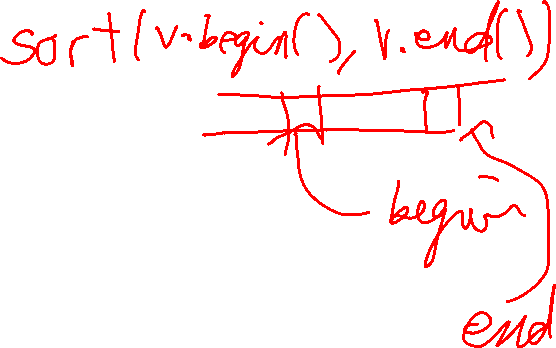 sort(v.begin(), v.end())
begin
end